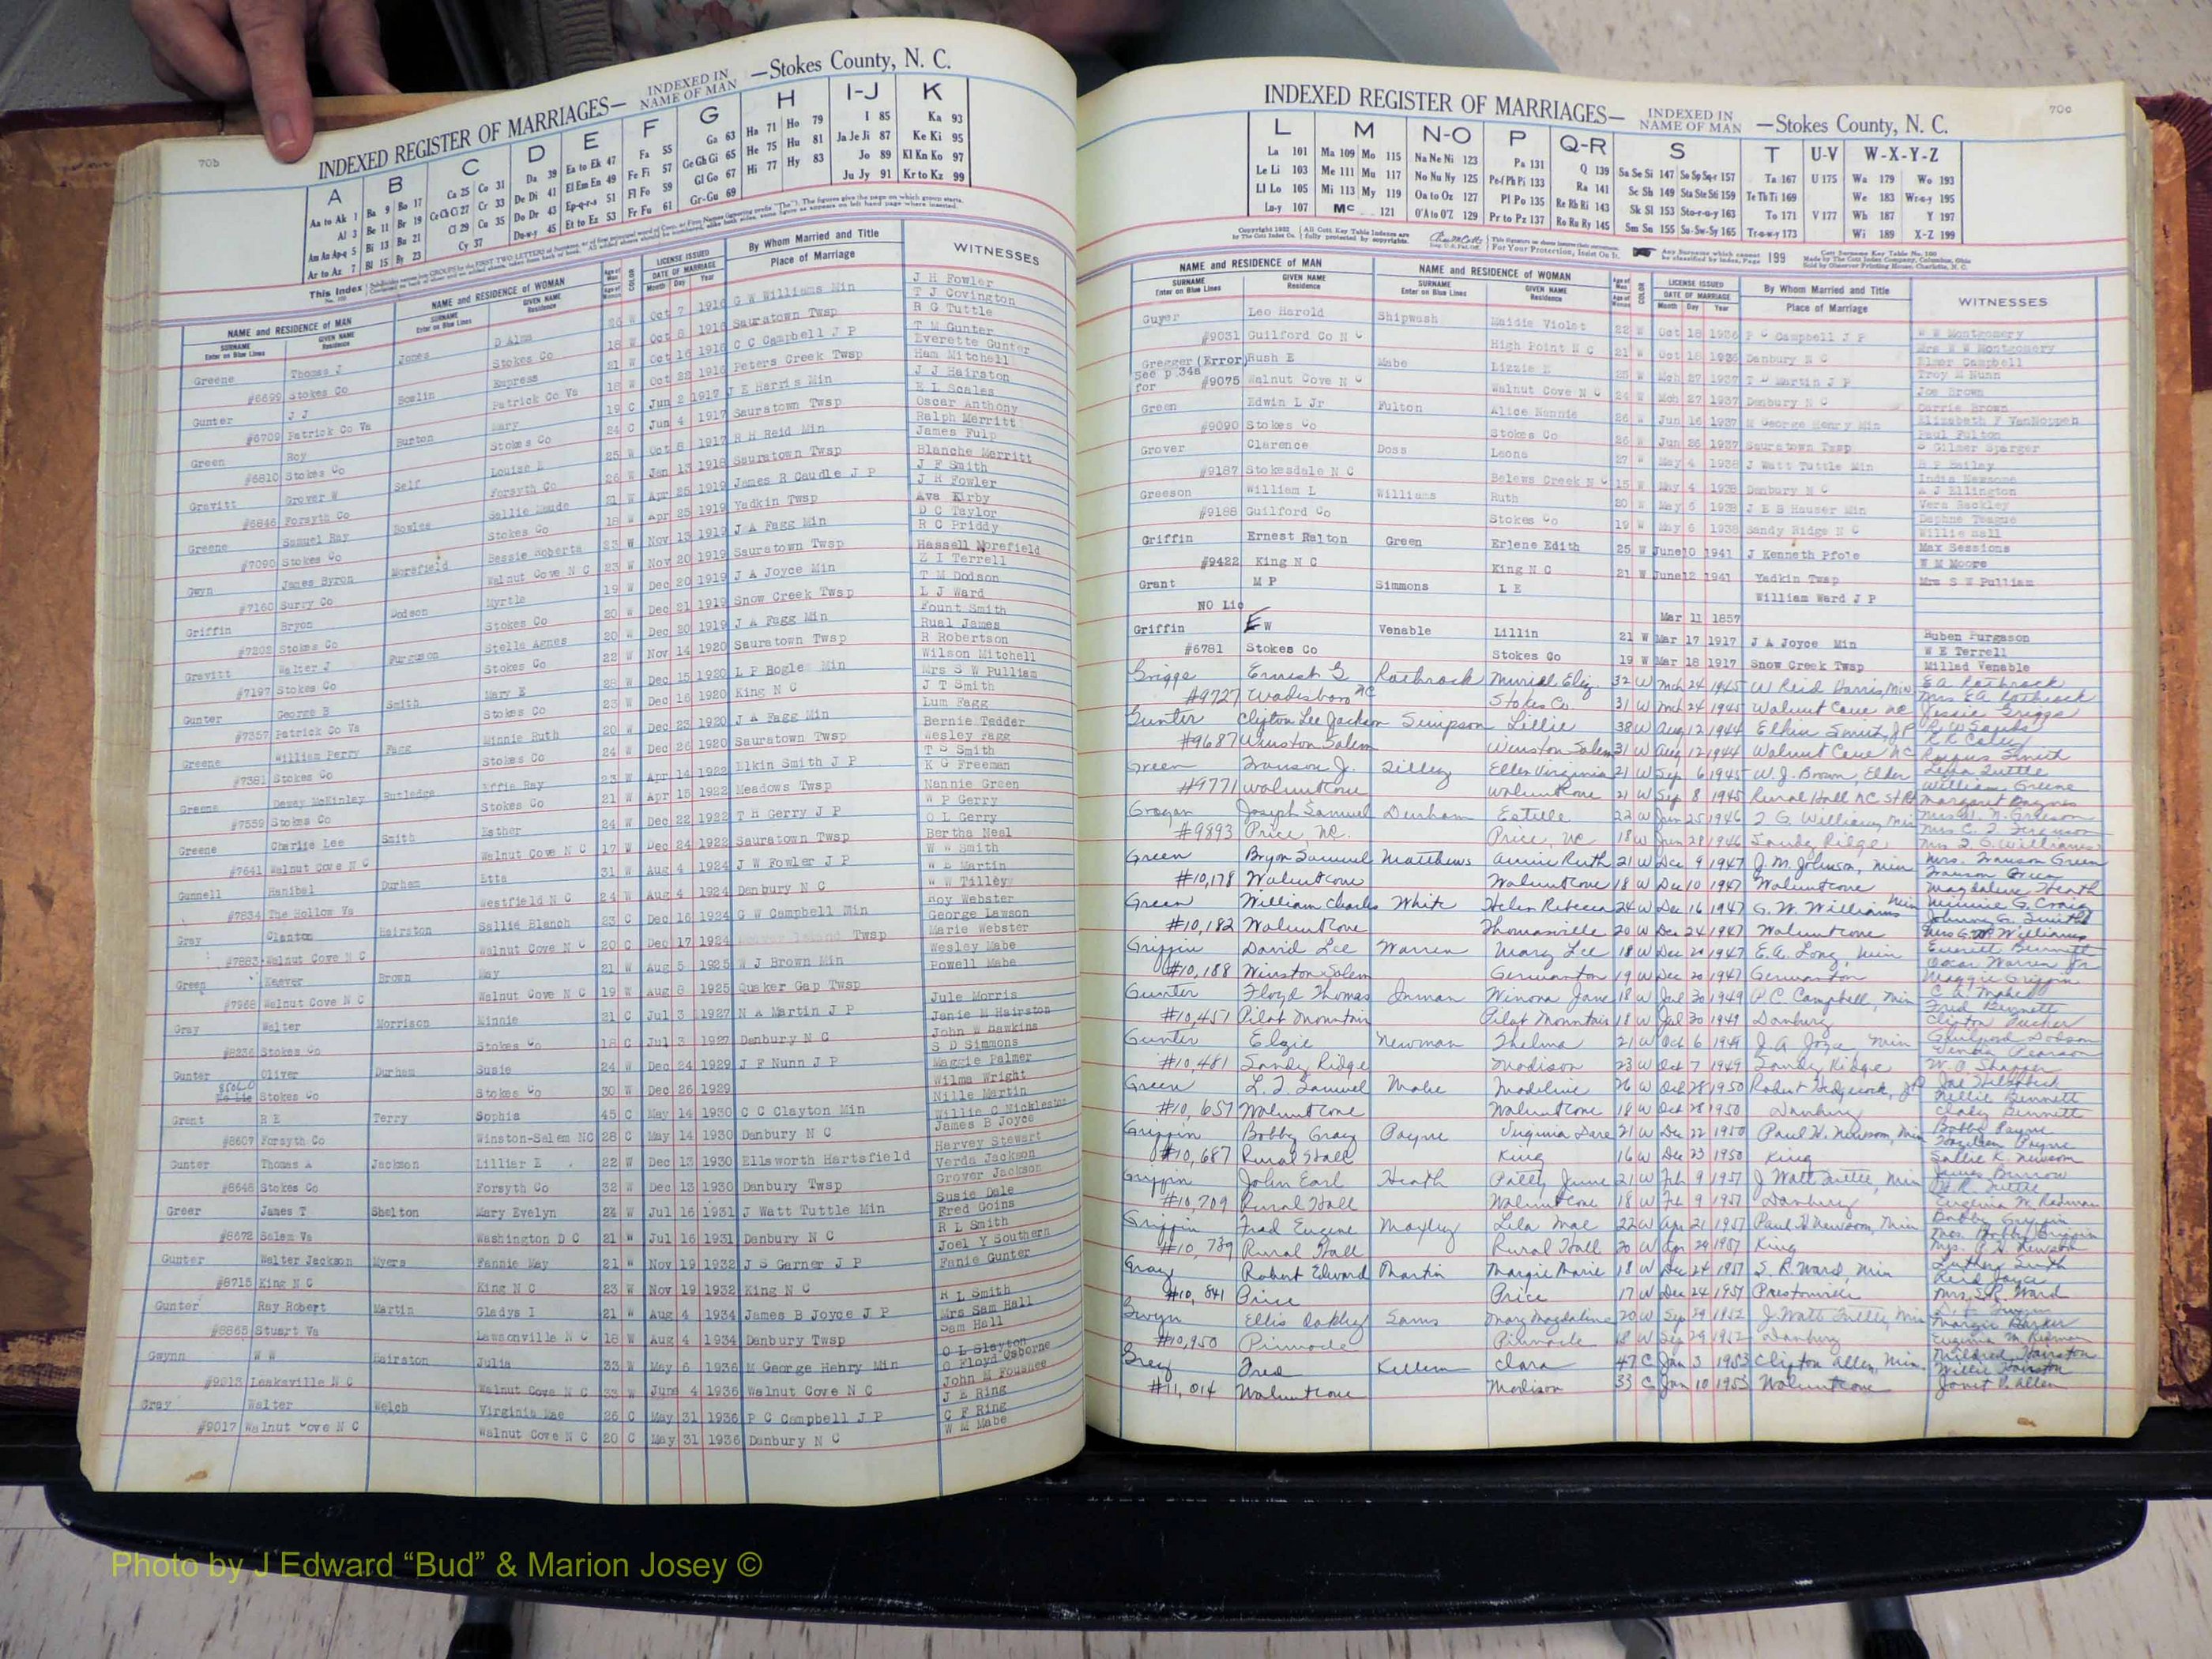 70b
INDEXED REGISTER OF MARRIAGES— INDEXED IN NAME OF MAN —Stokes County, N. C.
A B C D E F G H I-J K
Aa to Ak 1 Ba 9 Bo 17 Ca 25 Co 31 Da 39 Ea to Ek 47 Fa 55 Ga 63 Ha 71 Ho 79 I 85 Ka 93
Al 3 Be 11 Br 19 Ce Ch Ci 27 Cr 33 De Di 41 El Em En 49 Fe Fi 57 Ge Gh Gi 65 He 75 Hu 81 Ja Je Ji 87 Ke Ki 95
Am An Ap-q 5 Bi 13 Bu 21 Cl 29 Cu 35 Do Dr 43 Ep-q-r-s 51 Fl Fo 59 Gl Go 67 Hi 77 Hy 83 Jo 89 Kl Kn Ko 97
Ar to Az 7 Bl 15 By 23 Cy 37 Du-w-y 45 Et to Ez 53 Fr Fu 61 Gr-Gu 69 Ju Jy 91 Kr to Kz 99
NAME and RESIDENCE OF MAN NAME and RESIDENCE OF WOMAN COLOR LICENSE ISSUED DATE OF MARRIAGE By Whom Married and Title Place of Marriage WITNESSES
SURNAME Enter on Blue Lines GIVEN NAME Residence SURNAME Enter on Blue Lines GIVEN NAME Residence Month Day Year
Greene Thomas J Jones D Alma Oct 7 1916 G W Williams Min J H Fowler
T J Covington
#6699 Stokes Co Stokes Co 18 W Oct 8 1916 Sauratown Twsp R G Tuttle
Gunter J J Bowlin Express 21 W Oct 16 1916 C C Campbell J P T M Gunter
Everette Gunter
#6709 Patrick Co Va Patrick Co Va 18 W Oct 22 1916 Peters Creek Twsp Ham Mitchell
Green Roy Burton Mary 19 C Jun 2 1917 J E Harris Min J J Hairston
R L Scales
#6810 Stokes Co Stokes Co 24 C Jun 4 1917 Sauratown Twsp Oscar Anthony
Gravitt Grover W Self Louise E 25 W Oct 8 1917 R H Reid Min Ralph Merritt
James Fulp
#6846 Forsyth Co Forsyth Co 26 W Jan 13 1918 Sauratown Twsp Blanche Merritt
Greene Samuel Ray Bowles Sallie Maude 21 W Apr 25 1919 James R Caudle J P J F Smith
J H Fowler
#7090 Stokes Co Stokes Co 18 W Apr 25 1919 Yadkin Twsp Ava Kirby
Gwyn James Byron Morefield Bessie Roberta 23 W Nov 13 1919 J A Fagg Min D C Taylor
R C Priddy
#7160 Surry Co Walnut Cove N C 23 W Nov 20 1919 Sauratown Twsp Hassell Morefield
Griffin Bryon Dodson Myrtle 19 W Dec 20 1919 J A Joyce Min E I Terrell
T M Dodson
#7202 Stokes Co Stokes Co 20 W Dec 21 1919 Snow Creek Twsp L J Ward
Gravitt Walter J Furguson Stella Agnes 20 W Dec 20 1919 J A Fagg Min Fount Smith
Rual James
#7197 Stokes Co Stokes Co 22 W Nov 14 1920 Sauratown Twsp R Robertson
Gunter George B Smith Mary E 28 W Dec 15 1920 L P Bogle Min Wilson Mitchell
Mrs S W Pulliam
#7357 Patrick Co Va Stokes Co 23 W Dec 16 1920 King N C J T Smith
Greene William Perry Fagg Minnie Ruth 20 W Dec 23 1920 J A Fagg Min Lum Fagg
Bernie Tedder
#7381 Stokes Co Stokes Co 24 W Dec 26 1920 Sauratown Twsp Wesley Fagg
Greene Dewey McKinley Rutledge Effie Ray 23 W Apr 14 1922 Elkin Smith J P T S Smith
K G Freeman
#7559 Stokes Co Stokes Co 21 W Apr 15 1922 Meadows Twsp Nannie Green
Greene Charlie Lee Smith Esther 24 W Dec 22 1922 T H Gerry J P W P Gerry
O L Gerry
#7641 Walnut Cove N C Walnut Cove N C 17 W Dec 24 1922 Sauratown Twsp Bertha Neal
Gunnell Hanibal Durham Etta 31 W Aug 4 1924 J W Fowler J P W W Smith
W E Martin
#7834 The Hollow Va Westfield N C 24 W Aug 4 1924 Danbury N C W W Tilley
Gray Clanton Hairston Sallie Blanch 23 C Dec 16 1924 G W Campbell Min Roy Webster
George Lawson
#7883 Walnut Cove N C Walnut Cove N C 20 C Dec 17 1924 Twsp Marie Webster
Green Weaver Brown May 21 W Aug 5 1925 W J Brown Min Wesley Mabe
Powell Mabe
#7968 Walnut Cove N C Walnut Cove N C 19 W Aug 8 1925 Quaker Gap Twsp
Gray Walter Morrison Minnie 21 C Jul 3 1927 N A Martin J P Jule Morris
Janie M Hairston
#8236 Stokes Co Stokes Co 18 C Jul 3 1927 Danbury N C John W Hawkins
Gunter Oliver Durham Susie 24 W Dec 24 1929 J F Nunn J P S D Simmons
Maggie Palmer
Stokes Co Stokes Co 30 W Dec 26 1929 Wilma Wright
Grant R E Terry Sophia 45 C May 14 1930 C C Clayton Min Nille Martin
Willie C Nicklester
#8607 Forsyth Co Winston-Salem NC 28 C May 14 1930 Danbury N C James B Joyce
Gunter Thomas A Jackson Lilliar E 22 W Dec 13 1930 Ellsworth Hartsfield Harvey Stewart
Verda Jackson
#8648 Stokes Co Forsyth Co 32 W Dec 13 1930 Danbury Twsp Grover Jackson
Greer James T Shelton Mary Evelyn 24 W Jul 16 1931 J Watt Tuttle Min Susie Dale
Fred Goins
#8672 Salem Va Washington D C 21 W Jul 16 1931 Danbury N C R L Smith
Gunter Walter Jackson Myers Fannie May 21 W Nov 19 1932 J S Garner J P Joel Y Southern
Fanie Gunter
#8715 King N C King N C 23 W Nov 19 1932 King N C
Gunter Ray Robert Martin Gladys I 21 W Aug 4 1934 James B Joyce J P R L Smith
Mrs Sam Hall
#8865 Stuart Va Lawsonville N C 18 W Aug 4 1934 Danbury Twsp Sam Hall
Gwynn W W Hairston Julia 33 W May 6 1936 M George Henry Min O L Slayton
O Floyd Osborne
#9013 Leaksville N C Walnut Cove N C 33 W June 4 1936 Walnut Cove N C John M Foushee
Gray Walter Welch Virginia Mae 26 C May 31 1936 P C Campbell J P J E Ring
C F Ring
#9017 Walnut Cove N C Walnut Cove N C 20 C May 31 1936 Danbury N C W M Mabe
70c
INDEXED REGISTER OF MARRIAGES— INDEXED IN NAME OF MAN —Stokes County, N. C.
L M N-O P Q-R S T U-V W-X-Y-Z
La 101 Ma 109 Mo 115 Na Ne Ni 123 Pa 131 Q 139 Sa Se Si 147 So Sp Sq-r 157 Ta 167 U 175 Wa 179 Wo 193
Le Li 103 Me 111 Mu 117 No Nu Ny 125 Pe-f Ph Pi 133 Ra 141 Sc Sh 149 Sta Ste Sti 159 Te Th Ti 169 We 183 Wr-a-y 195
Ll Lo 105 Mi 113 My 119 Oa to Oz 127 Pl Po 135 Re Rh Ri 143 Sk Sl 153 Sto-r-u-y 163 To 171 V 177 Wh 187 Y 197
Lu-y 107 Mc 121 O'A to O'Z 129 Pr to Pz 137 Ro Ru Ry 145 Sm Sn 155 Su-Sw-Sy 165 Tr-u-w-y 173 Wi 189 X-Z 199
NAME and RESIDENCE OF MAN NAME and RESIDENCE OF WOMAN COLOR LICENSE ISSUED DATE OF MARRIAGE By Whom Married and Title Place of Marriage WITNESSES
SURNAME Enter on Blue Lines GIVEN NAME Residence SURNAME Enter on Blue Lines GIVEN NAME Residence Month Day Year
Guyer Leo Harold Shipwash Maidie Violet 22 W Oct 18 1936 P C Campbell J P W W Montgomery
Mrs W W Montgomery
#9031 Guilford Co N C High Point N C 21 W Oct 18 1936 Danbury N C Elmer Campbell
Gregger (Error) Rush E Mabe Lizzie E 25 W Mch 27 1937 T D Martin J P Troy M Nunn
See p 34a for Joe Brown
#9075 Walnut Cove N C Walnut Cove N C 24 W Mch 27 1937 Danbury N C Carrie Brown
Green Edwin L Jr Fulton Alice Nannie 26 W Jun 16 1937 M George Henry Min Elizabeth F VanNoppen
Paul Fulton
#9090 Stokes Co Stokes Co 26 W Jun 26 1937 Sauratown Twsp S Gilmer Sparger
Grover Clarence Doss Leona 27 W May 4 1938 J Watt Tuttle Min Bailey
#9187 Stokesdale N C Belews Creek N C 15 W May 4 1938 Danbury N C A J Ellington
Greeson William L Williams Ruth 20 W May 6 1938 J E B Hauser Min Vera Rackley
Daphne Teague
#9188 Guilford Co Stokes Co 19 W May 6 1938 Sandy Ridge N C Willie Hall
Griffin Ernest Ralton Green Erlene Edith 25 W June10 1941 J Kenneth Pfole Max Sessions
W M Moore
#9422 King N C King N C 21 W June12 1941 Yadkin Twsp Mrs S W Pulliam
Grant M P Simmons L E William Ward J P
NO Lic Mar 11 1857
Griffin E W Venable Lillin 21 W Mar 17 1917 J A Joyce Min Ruben Furgason
W E Terrell
#6781 Stokes Co Stokes Co 19 W Mar 18 1917 Snow Creek Twsp Millad Venable
Griggs Ernest G Rothrock Muriel Eliz. 32 W Mch 24 1945 W Reid Harris, Min E A Rothrock
Mrs E A Rothrock
#9727 Wadesboro NC Stokes Co 31 W Mch 24 1945 Walnut Cove NC Jessie Griggs
Gunter Clifton Lee Jackson Simpson Lillie 38 W Aug 12 1944 Elkin Smith, JP
#9687 Winston Salem Winston Salem 31 W Aug 12 1944 Walnut Cove NC Smith
Green Franson J. Tilley Ellen Virginia 21 W Sep 6 1945 W. J. Brown, Elder Lena Tuttle
William Greene
#9771 Walnut Cove Walnut Cove 21 W Sep 8 1945 Rural Hall NC Margaret Haynes
Grogan Joseph Samuel Durham Estelle 22 W Jun 25 1946 T. G. Williams, Min
#9893 Price, NC. Price, NC 18 W Jun 28 1946 Sandy Ridge Mrs T. G. Williams
Green Bryon Samuel Matthews Annie Ruth 21 W Dec 9 1947 J. M. Johnson, Min Mrs. Franson Green
Franson Green
#10,178 Walnut Cove Walnut Cove 18 W Dec 10 1947 Walnut Cove Magdalene Heath
Green William Charles White Helen Rebecca 24 W Dec 16 1947 G. W. Williams Min Minnie G. Craig
Johnny G. Smith
#10,182 Walnut Cove Thomasville 20 W Dec 24 1947 Walnut Cove Mrs G. W. Williams
Griffin David Lee Warren Mary Lee 18 W Dec 20 1947 E. A. Long, Min Everett Bennett
Oscar Warren Jr
#10,188 Winston-Salem Germanton 19 W Dec 20 1947 Germanton Maggie Griffin
Gunter Floyd Thomas Inman Winona Jane 18 W Jul 30 1949 P. C. Campbell, Min
Fred Bennett
#10,457 Pilot Mountain Pilot Mountain 18 W Jul 30 1949 Danbury Clifton Tucker
Gunter Elzie Newman Thelma 21 W Oct 6 1949 J. A. Joyce Min Guilford Dodson
Pearson
#10,481 Sandy Ridge Madison 23 W Oct 7 1949 Sandy Ridge
Green L. T. Samuel Mabe Madeline 26 W Oct 28 1950 Robert Hedgecock, JP
Nellie Bennett
#10,657 Walnut Cove Walnut Cove 18 W Oct 28 1950 Danbury Bennett
Griffin Bobby Gray Payne Virginia Dare 21 W Dec 22 1950 Paul H. Newsom, Min Bobby Payne
Payne
#10,687 Rural Hall King 16 W Dec 23 1950 King Sallie K. Newsom
Griffin John Earl Heath Patty June 21 W Feb 9 1951 J Watt Tuttle, Min James Burrow
#10,709 Rural Hall Walnut Cove 18 W Feb 9 1951 Danbury
Griffin Fred Eugene Moxley Lila Mae 22 W Apr 21 1951 Paul H Newsom, Min Bobby Griffin
Mrs. Bobby Griffin
#10,739 Rural Hall Rural Hall 20 W Apr 24 1951 King Mrs. P. H. Newsom
Gray Robert Edward Martin Margie Marie 18 W Dec 24 1951 S. R. Ward, Min Luther Smith
#10,841 Price Price 17 W Dec 24 1951 Prestonville Mrs. S. R. Ward
Gwyn Ellis Oakley Sams Mary Magdaline 20 W Sep 29 1952 J. Watt Tuttle, Min
Margie Barker
#10,950 Pinnacle Pinnacle 18 W Sep 29 1952 Danbury
Grey Fred Kellem Clara 47 C Jan 3 1953 Clifton Allen, Min. Mildred Hairston
Willie Hairston
#11,014 Walnut Cove Madison 33 C Jan 10 1953 Walnut Cove Janet P. Allen
Photo by J Edward “Bud” & Marion Josey ©